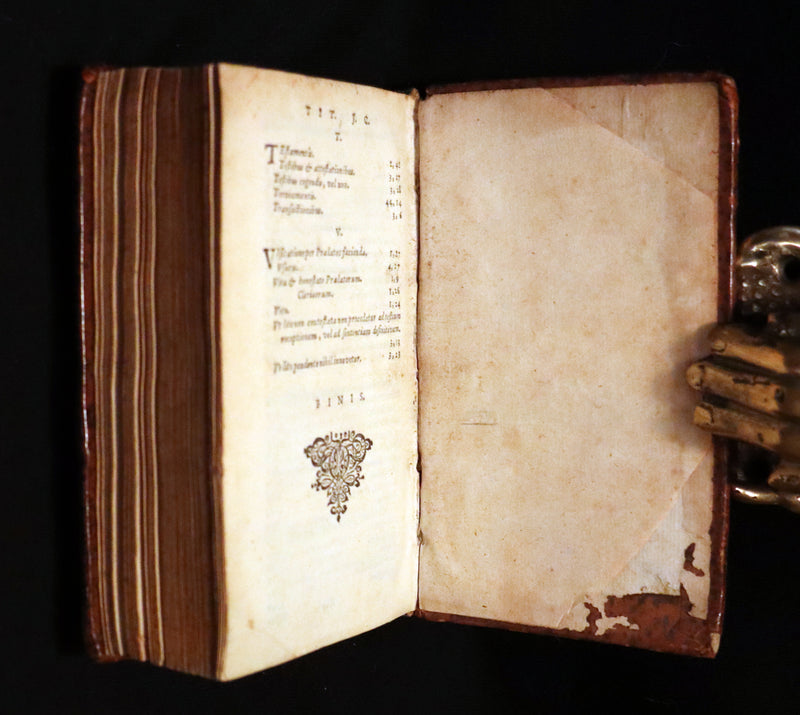 TIT. J. C.
T.
TEstamentis.
Testibus & attestationibus. 2,41
Testibus cogendis, vel non. 3,27
Transactionibus. 3,6
V.
VIsitatione per Prælatos facienda. 1,27
Usuris. 4,27
Vita & honestate Prælatorum. 1,9
Clericorum. 1,26
1,24
Ut lite non contestata non procedatur ad testium
receptionem, vel ad sententiam definitivam.
3,13
Ut lite pendente nihil innovetur. 3,23
BINIS.